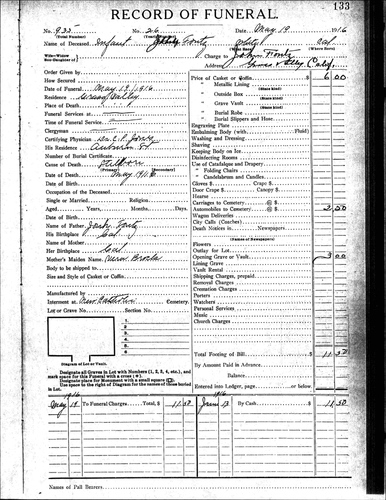 133
RECORD OF FUNERAL.
No. 935 No. 216 Date May 19 1916
(Total Number) (Yearly Number)
Name of Deceased Infant Fontz Cal
(What Race) (Where Born)
Wife-Widow Son-Daughter of Charge to John Fontz
Address Grass Valley Calif.
Order Given by
How Secured
Date of Funeral May 19 1916
Residence Grass Valley
Place of Death
Funeral Services at
Time of Funeral Service
Clergyman
Certifying Physician Dr. C. P. Jones
His Residence Auburn St
Number of Burial Certificate
Cause of Death Stillborn
(Primary) (Secondary)
Date of Death May 19
Date of Birth
Occupation of the Deceased
Single or Married Religion
Aged Years, Months, Days
Date of Birth
Name of Father John Fontz
His Birthplace Cal
Name of Mother
Her Birthplace Cal
Mother's Maiden Name
Body to be shipped to
Size and Style of Casket or Coffin
Manufactured by
Interment at New Catholic Cemetery
Lot or Grave No. Section No.
1
2
3
4
5
6
Diagram of Lot or Vault.
Designate all Graves in Lot with Numbers (1, 2, 3, 4, etc.), and mark space for this Funeral with a cross (x).
Designate place for Monument with a small square
Use space to the right of Diagram for the names of those buried in Lot.
Price of Casket or Coffin $ 6 00
" Metallic Lining
(State kind)
" Outside Box
(State kind)
" Grave Vault
(State kind)
" Burial Robe
" Burial Slippers and Hose
Engraving Plate
Embalming Body (with Fluid)
Washing and Dressing
Shaving
Keeping Body on Ice
Disinfecting Rooms
Use of Catafalque and Drapery
" Folding Chairs
" Candelabrum and Candles
Gloves $ Crape $
Door Crape $ Canopy $
Hearse
Carriages to Cemetery @ $
Automobiles to Cemetery @ $ 2 50
Wagon Deliveries
City Calls (Coaches)
Death Notices in Newspapers
(Name of Newspapers)
Flowers
Outlay for Lot
Opening Grave or Vault 3 00
Lining Grave
Vault Rental
Shipping Charges, prepaid
Removal Charges
Cremation Charges
Porters
Watchers
Personal Services
Music
Church Charges
Total Footing of Bill $ 11 50
By Amount Paid in Advance
Balance
Entered into Ledger, page or below.
1916 1916
May 19 To Funeral Charges Total, $ 11 50 June 13 By Cash $ 11 50
Names of Pall Bearers